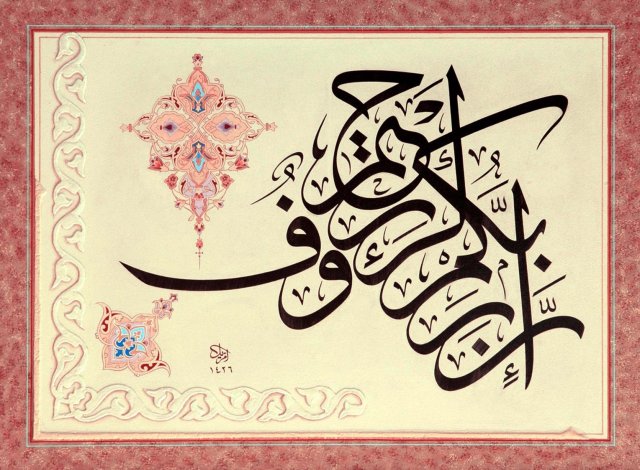 إِنَّ رَبَّكُمْ لَرَءُوفٌ رَحِيمٌ
١٤٢٦